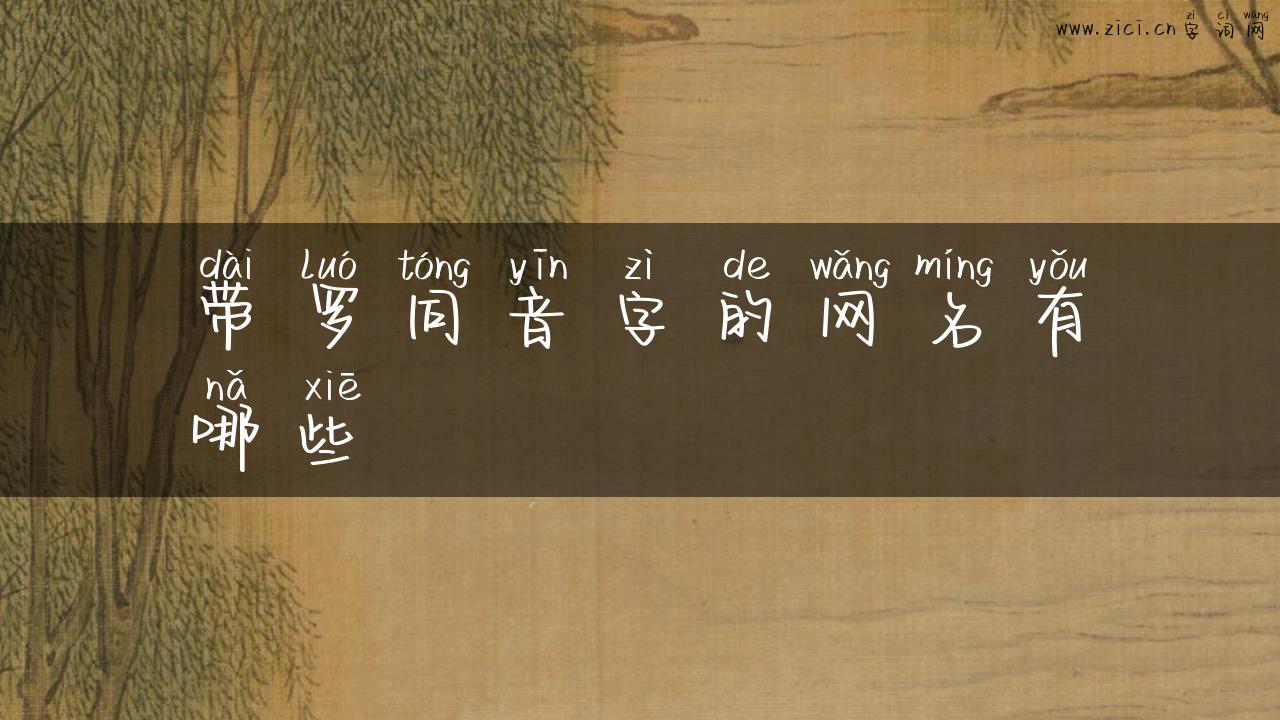 zì cí wǎng
www.zici.cn字词网
dài luó tóng yīn zì de wǎng míng yǒu
带罗同音字的网名有
nǎ xiē
哪些